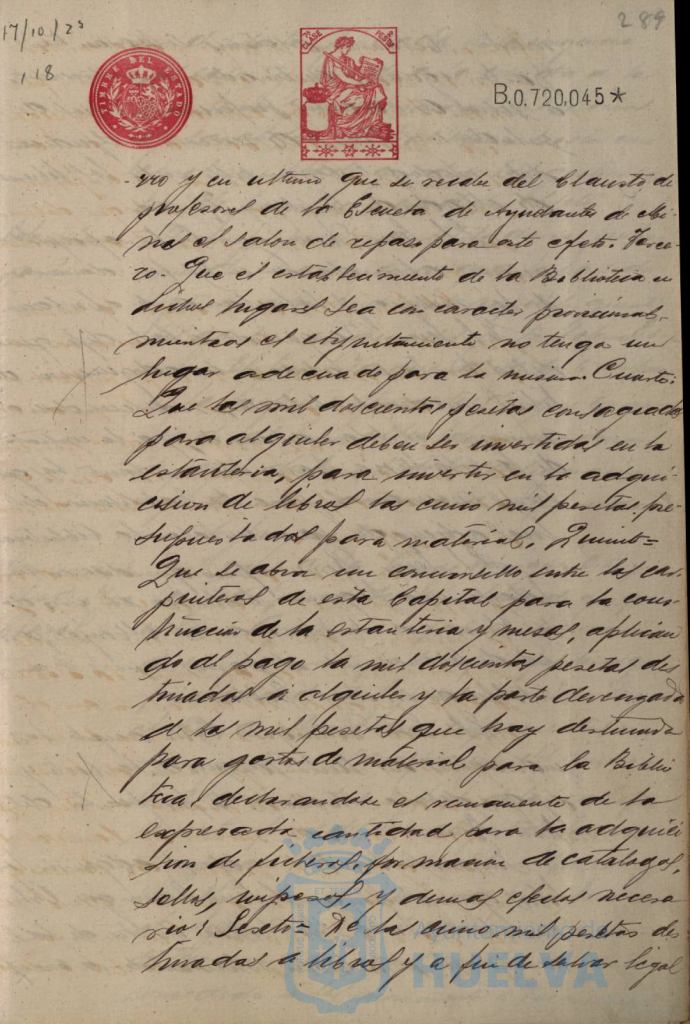 17/10/25
118
289
TIMBRE DEL ESTADO
7ª CLASE
PESETAS
B.0.720.045*
vro y en ultimo que se recabe del Claustro de
profesores de la Escuela de Ayudantes de Mi-
nas el salon de repaso para este efeto. Terce-
ro. Que el establecimiento de la Biblioteca en
dichos lugares sea con caracter provisional,
mientras el Ayuntamiento no tenga un
lugar adecuado para la misma. Cuarto:
Que las mil doscientas pesetas consagradas
para alquiler deben ser invertidas en la
estanteria, para invertir en la adqui-
sicion de libros las cinco mil pesetas pre-
supuestadas para material. Quinto=
Que se abra un concursillo entre los car-
pinteros de esta Capital para la cons-
trucción de la estanteria y mesas, aplican
do al pago la mil doscientas pesetas des
tinadas a alquiler y la parte devengada
de las mil pesetas que hay destinada
para gastos de material para la Biblio
teca, declarandose el remanente de la
expresada cantidad para la adquici
sion de ficheros, formacion de catalogos,
sellos, impresos, y demas efectos necesa
rios: Sexto= De la cinco mil pesetas des
tinadas a libros y a fin de salvar legal
Ayuntamiento de
HUELVA